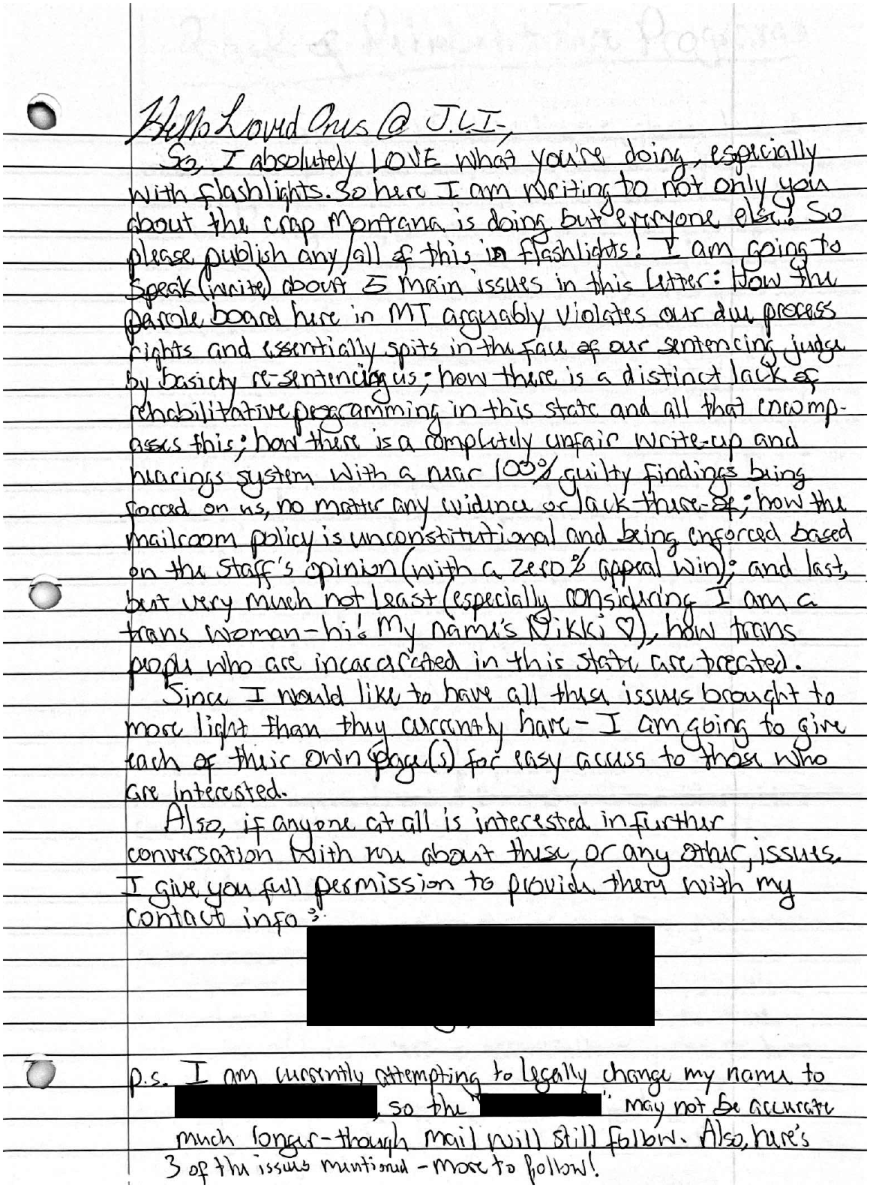 Hello Loved Ones @ J.L.I.,
So, I absolutely LOVE what you're doing, especially
with flashlights. So here I am writing to not only you
about the crap Montana is doing but everyone else! So
please publish any/all of this in flashlights! I am going to
speak (write) about 5 main issues in this letter: How the
parole board here in MT arguably violates our due process
rights and essentially spits in the face of our sentencing judge
by basicly re-sentencing us; how there is a distinct lack of
rehabilitative programming in this state and all that encomp-
asses this; how there is a completely unfair write-up and
hearings system with a near 100% guilty findings being
forced on us, no matter any evidence or lack-there-of; how the
mailroom policy is unconstitutional and being enforced based
on the staff's opinion (with a zero % appeal win); and last,
but very much not least (especially considering I am a
trans woman-hi! My name's Nikki ♡), how trans
people who are incarcerated in this state are treated.
Since I would like to have all these issues brought to
more light than they currently have - I am going to give
each of their own page(s) for easy access to those who
are interested.
Also, if anyone at all is interested in further
conversation with me about these, or any other, issues.
I give you full permission to provide them with my
contact info:
p.s. I am currently attempting to legally change my name to
, so the "          " may not be accurate
much longer-though mail will still follow. Also, here's
3 of the issues mentioned - more to follow!